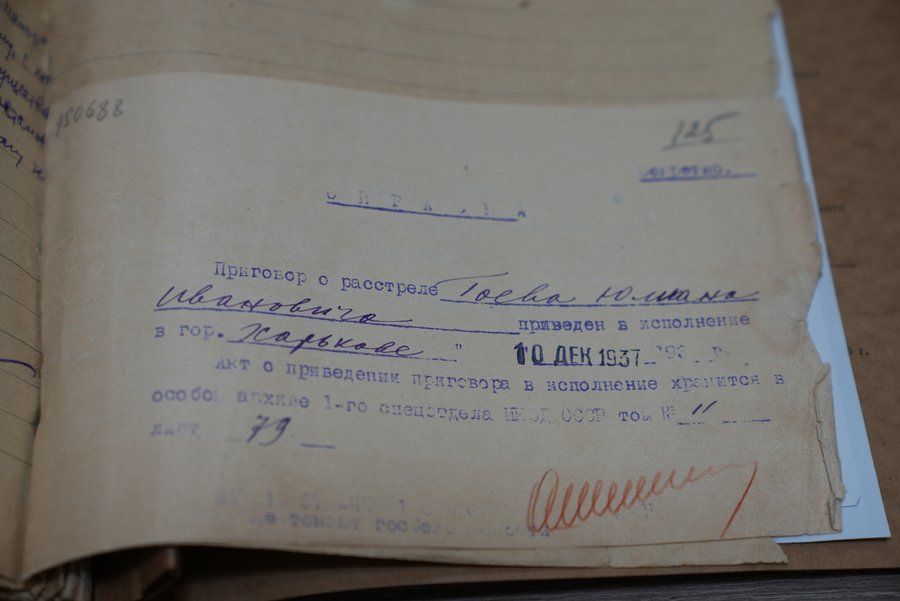 150688
125
Секретно.
СПРАВКА
Приговор о расстреле Гоева Юлиана
Ивановича приведен в исполнение
в гор. Харькове " 10 ДЕК 1937 193 г.
Акт о приведении приговора в исполнение хранится в
особом архиве 1-го спецотдела НКВД СССР том № 11
лист 79
лейтенант госбезопасности